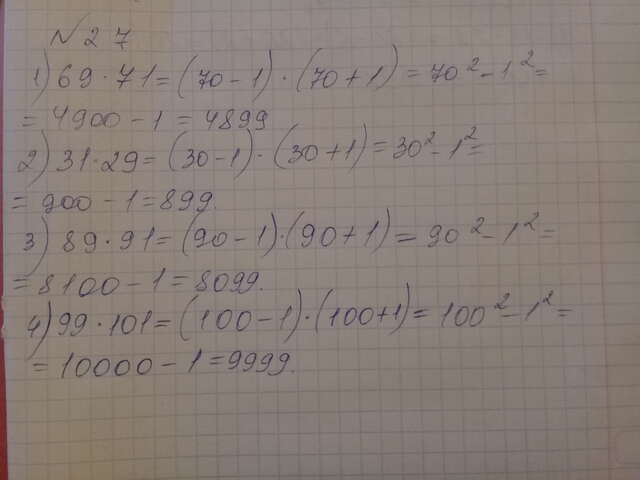 N 27
1) 69 · 71 = (70 - 1) · (70 + 1) = 70² - 1² =
= 4900 - 1 = 4899
2) 31 · 29 = (30 - 1) · (30 + 1) = 30² - 1² =
= 900 - 1 = 899.
3) 89 · 91 = (90 - 1) · (90 + 1) = 90² - 1² =
= 8100 - 1 = 8099.
4) 99 · 101 = (100 - 1) · (100 + 1) = 100² - 1² =
= 10000 - 1 = 9999.